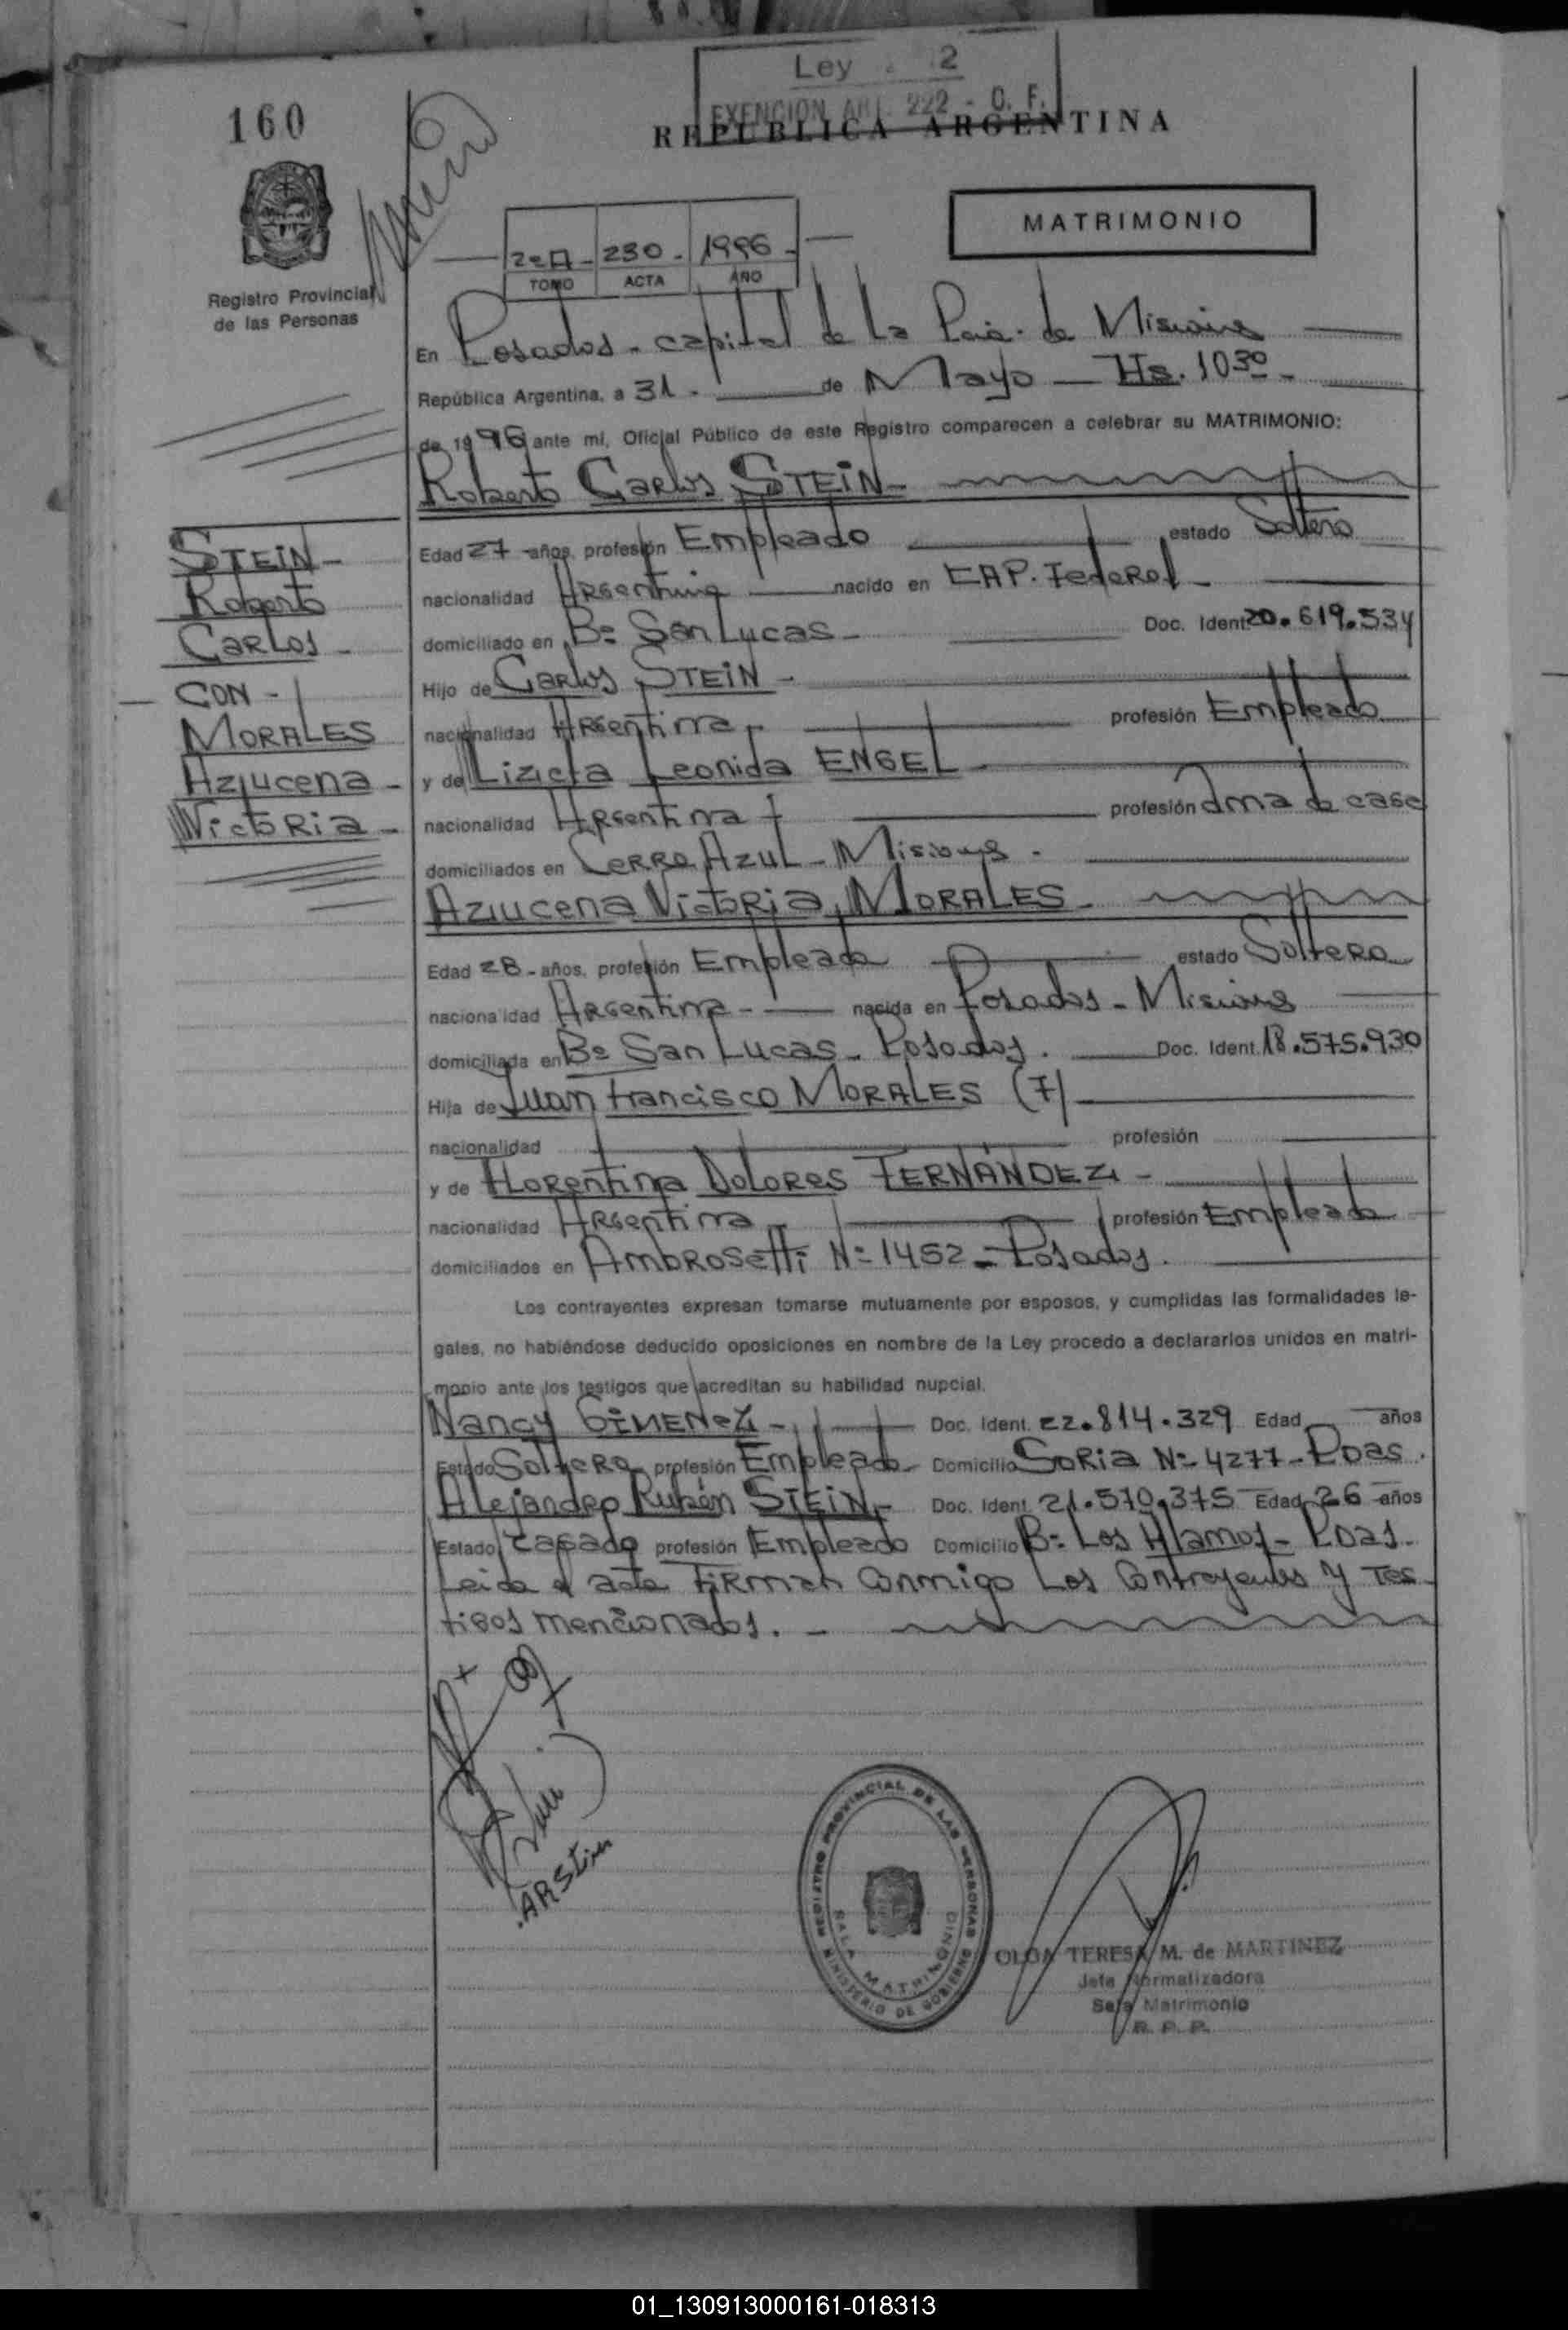 Ley 2
EXENCION ART. 222 - C. F.
160
REPUBLICA ARGENTINA
MATRIMONIO
230 - 1996 -
TOMO ACTA AÑO
Registro Provincial
de las Personas
En Posadas - capital de la Pcia. de Misiones
República Argentina, a 31 - de Mayo - Hs. 10 30 -
de 1996 ante mi, Oficial Público de este Registro comparecen a celebrar su MATRIMONIO:
Roberto Carlos STEIN -
STEIN -
Roberto
Carlos -
CON -
MORALES
Azucena -
Victoria -
Edad 27 - años, profesión Empleado estado Soltero
nacionalidad Argentina nacido en CAP. Federal -
domiciliado en Bº San Lucas - Doc. Ident. 20.619.534
Hijo de Carlos STEIN -
nacionalidad Argentina - profesión Empleado
y de Lizieta Leonida ENGEL -
nacionalidad Argentina profesión ama de casa
domiciliados en Cerro Azul - Misiones -
Azucena Victoria MORALES -
Edad 28 - años, profesión Empleada estado Soltera
nacionalidad Argentina - nacida en Posadas - Misiones
domiciliada en Bº San Lucas - Posadas. Doc. Ident. 18.575.930
Hija de Juan Francisco MORALES (7)
nacionalidad profesión
y de Florentina Dolores FERNÁNDEZ -
nacionalidad Argentina profesión Empleada
domiciliados en Ambrosetti Nº 1452 - Posadas.
Los contrayentes expresan tomarse mutuamente por esposos, y cumplidas las formalidades le-
gales, no habiéndose deducido oposiciones en nombre de la Ley procedo a declararlos unidos en matri-
monio ante los testigos que acreditan su habilidad nupcial.
Nancy GIMENEZ - Doc. Ident. 22.814.329 Edad años
Estado Soltera profesión Empleada Domicilio Soria Nº 4277 - Pdas.
Alejandro Rubén STEIN - Doc. Ident. 21.570.375 Edad 26 años
Estado casado profesión Empleado Domicilio Bº Los Alamos - Pdas.
Leida el acta firman conmigo los contrayentes y tes-
tigos mencionados. -
ARStein
REGISTRO PROVINCIAL DE LAS PERSONAS
SALA MATRIMONIO
MINISTERIO DE GOBIERNO
OLGA TERESA M. de MARTINEZ
Jefa Normalizadora
Sala Matrimonio
R. P. P.
01_130913000161-018313